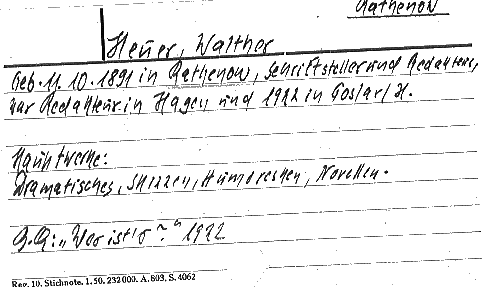 Rathenow
Heuer, Walther
Geb. 11. 10. 1891 in Rathenow, Schriftsteller und Redakteur,
war Redakteur in Hagen und 1922 in Goslar/H.
Hauptwerke:
Dramatisches, Skizzen, Humoresken, Novellen.
Q.Q: „Wer ist's?“ 1922
Reg. 10. Stichnote. 1. 50. 232000. A. 803. S. 4062